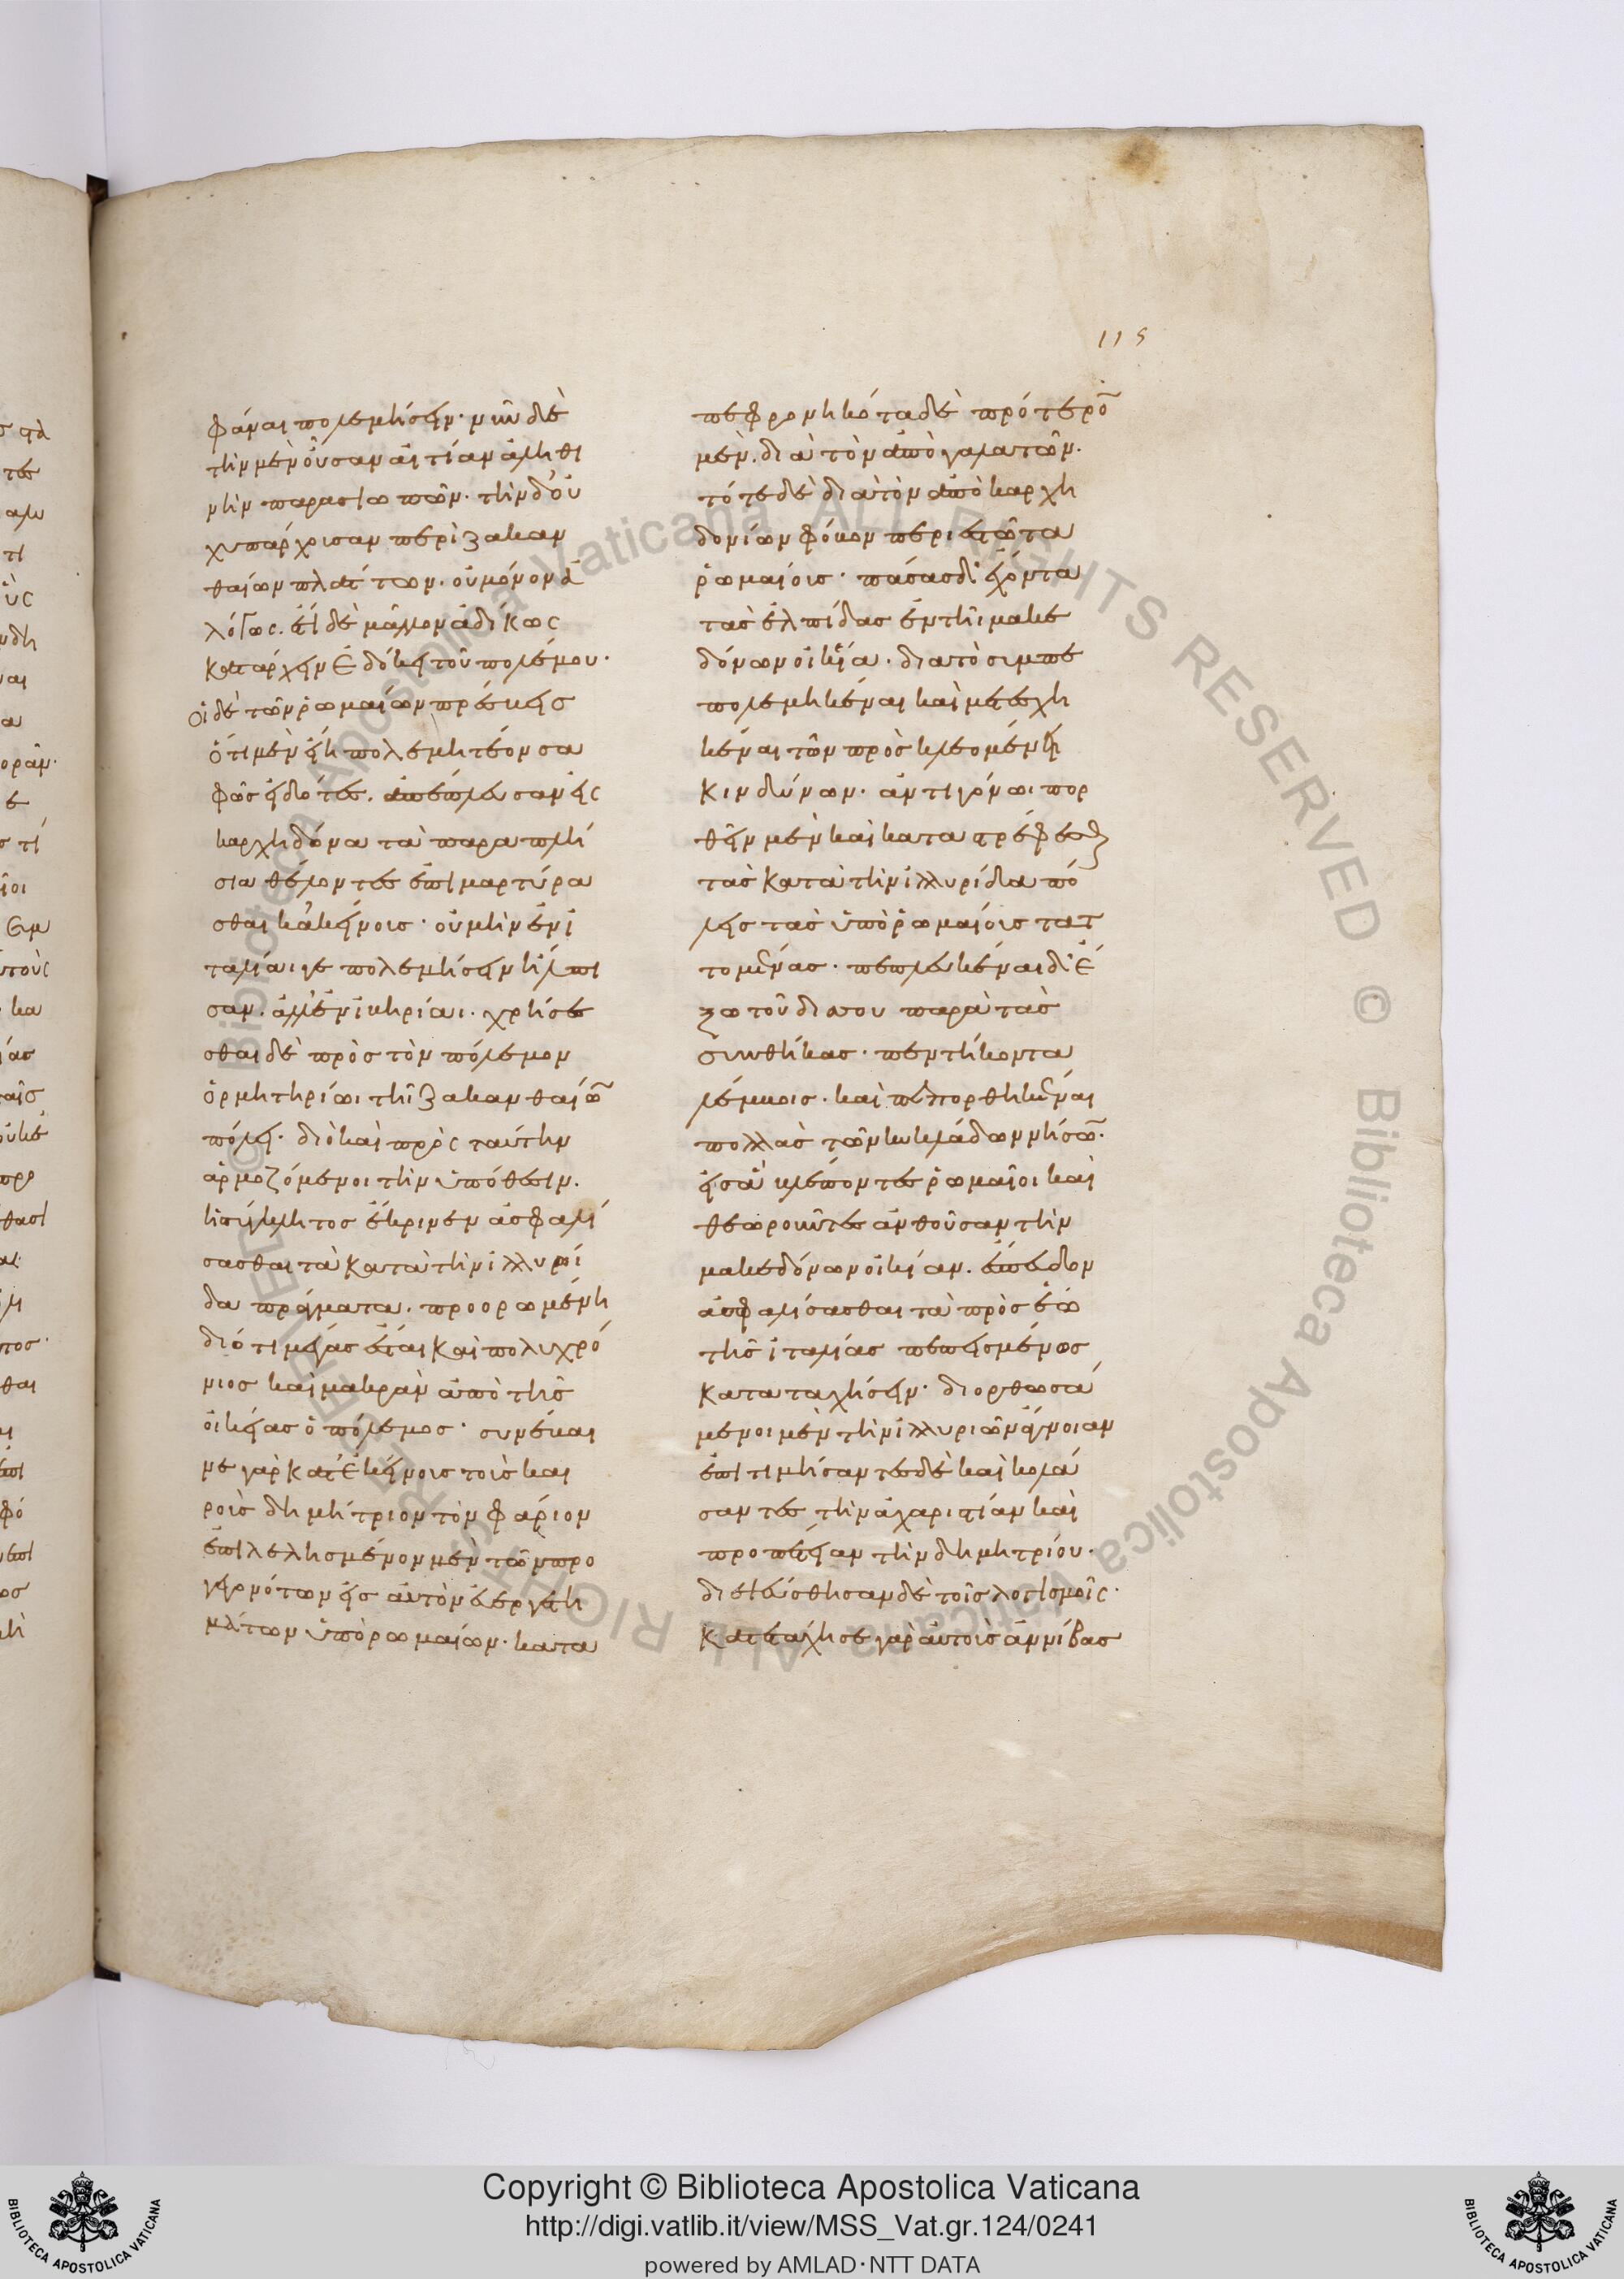 115
φάναι πολεμήσειν· νῦν δὲ
τὴν μὲν οὖσαν αἰτίαν ἀληθι
νὴν παρασιωπῶν· τὴν δ' οὐ
χ υπάρχουσαν περὶ ζακαν
θαίων πλάττων· οὐ μόνον ἀ
λόγως. ἔτι δὲ μᾶλλον ἀδίκως
κατάρχειν ἐδόκει τοῦ πολέμου·
Οἱ δὲ τῶν ῥωμαίων πρέσβεις
ὅτι μὲν εἴη πολεμητέον σα
φῶς εἰδότες. ἀπέπλευσαν εἰς
καρχηδόνα τὰ παραπλή
σια θέλοντες ἐπιμαρτύρα
σθαι κἀκείνοις· οὐ μὴν ἐν ἰ
ταλίαι γε πολεμήσειν ἤλπι
σαν. ἀλλ' ἐν ἰβηρίαι. χρήσε
σθαι δὲ πρὸς τὸν πόλεμον
ὁρμητηρίωι τῆι ζακανθαίω̅
πόλει· διὸ καὶ πρὸς ταύτην
ἁρμοζόμενοι τὴν ὑπόθεσιν.
ἡ σύγκλητος ἔκρινεν ἀσφαλί
σασθαι τὰ κατὰ τὴν ἰλλυρί
δα πράγματα. προορωμένη
διότι μέγας ἔσται καὶ πολυχρό
νιος καὶ μακρὰν ἀπὸ τῆς
οἰκείας ὁ πόλεμος· συνέβαι
νε γὰρ κατ' ἐκείνους τοὺς και
ροὺς δημήτριον τὸν φάριον
ἐπιλελησμένον μὲν τῶν προ
γεγονότων εἰς αὐτὸν εὐεργετη
μάτων ὑπὸ ῥωμαίων· κατα
πεφρονηκότα δὲ πρότερο̅
μὲν. διὰ τὸν ἀπὸ γαλατῶν.
τότε δὲ διὰ τὸν ἀπὸ καρχη
δονίων φόβον περιεστῶτα
ῥωμαίοις· πάσας δ' ἔχοντα
τὰς ἐλπίδας ἐν τῆι μακε
δόνων οἰκίᾳ. διὰ τὸ συμπε
πολεμηκέναι καὶ μετεσχη
κέναι τῶν πρὸς κλεομένη
κινδύνων· ἀντιγόνωι πορ
θεῖν μὲν καὶ καταστρέφεσθ
τὰς κατὰ τὴν ἰλλυρίδα πό
λεις τὰς ὑπὸ ῥωμαίοις τατ
τομένας· πεπλευκέναι δ' ἔ
ξω τοῦ λισσου παρὰ τὰς
συνθήκας· πεντήκοντα
λέμβοις· καὶ πεπορθηκέναι
πολλὰς τῶν κυκλάδων νήσω̅·
εἰς ἃ βλέποντες ῥωμαῖοι καὶ
θεωροῦντες ἀνθοῦσαν τὴν
μακεδόνων οἰκίαν. ἔσπευδον
ἀσφαλίσασθαι τὰ πρὸς ἕω
τῆς ἰταλίας πεπεισμένος
καταταχήσειν· διορθωσά
μενοι μὲν τὴν ἰλλυριῶν ἄγνοιαν
ἐπιτιμήσαντες δὲ καὶ κολά
σαντες τὴν ἀχαριστίαν καὶ
προπέτειαν τὴν δημητρίου·
διεψεύσθησαν δὲ τοῖς λογισμοῖς·
κατετάχησε γὰρ αὐτοὺς ἀννίβας
© Biblioteca Apostolica Vaticana ALL RIGHTS RESERVED © Biblioteca Apostolica Vaticana ALL RIGHTS RESERVED
Copyright © Biblioteca Apostolica Vaticana
http://digi.vatlib.it/view/MSS_Vat.gr.124/0241
powered by AMLAD·NTT DATA
BIBLIOTECA APOSTOLICA VATICANA
BIBLIOTECA APOSTOLICA VATICANA